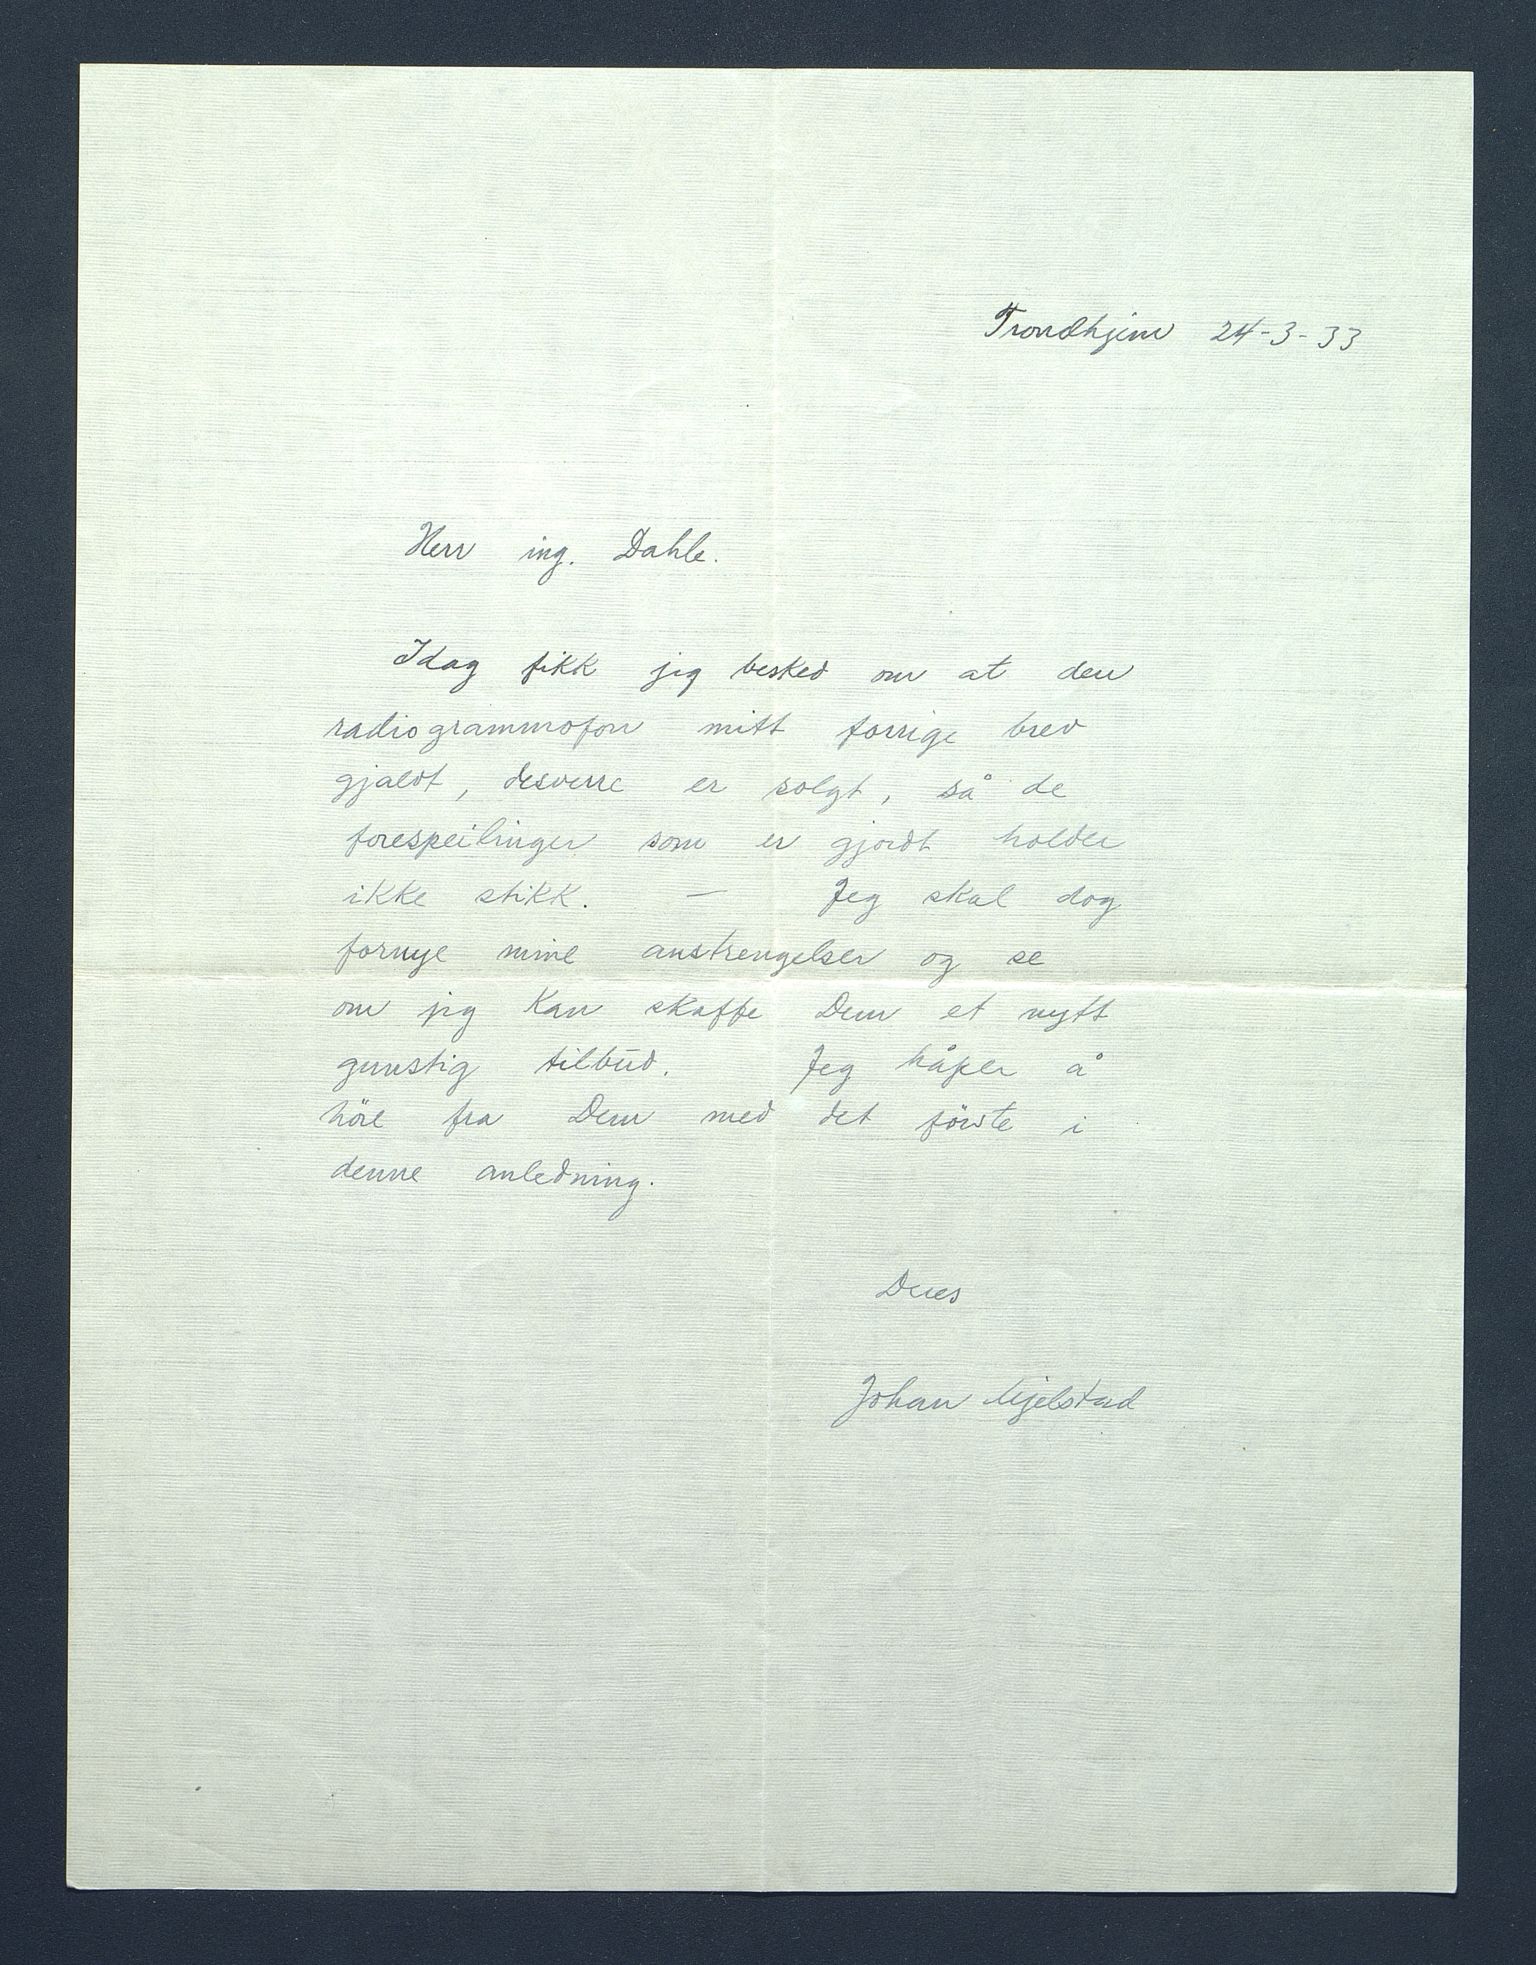 Trondhjem 24-3-33
Herr ing. Dahle.
Idag fikk jeg besked om at den
radiogrammofon mitt forrige brev
gjaldt, desverre er solgt, så de
forespeilinger som er gjordt holder
ikke stikk. — Jeg skal dog
fornye mine anstrengelser og se
om jeg kan skaffe Dem et nytt
gunstig tilbud. Jeg håper å
höre fra Dem med det förste i
denne anledning.
Deres
Johan Mjelstad